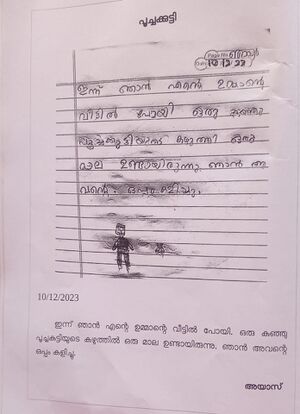 പൂച്ചക്കുട്ടി
Page No.
Date 10/12/23
ഇന്ന് ഞാൻ എന്റെ ഉമ്മാന്റെ
വീട്ടിൽ പോയി ഒരു കുഞ്ഞു
പൂച്ചക്കുട്ടിയുടെ കഴുത്തി ഒരു
മാല ഉണ്ടായിരുന്നു ഞാൻ അ
വന്റെ ഒപ്പം കളിച്ചു.
10/12/2023
ഇന്ന് ഞാൻ എന്റെ ഉമ്മാന്റെ വീട്ടിൽ പോയി. ഒരു കുഞ്ഞു
പൂച്ചകുട്ടിയുടെ കഴുത്തിൽ ഒരു മാല ഉണ്ടായിരുന്നു. ഞാൻ അവന്റെ
ഒപ്പം കളിച്ചു.
അയാസ്